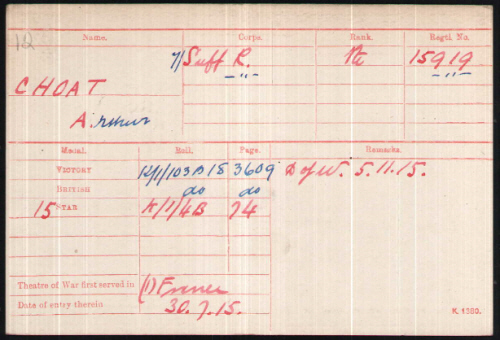 Name. Corps. Rank. Regtl. No.
7/Suff R. Pte 15919
CHOAT -"- -"-
Arthur
Medal. Roll. Page. Remarks.
VICTORY K/1/103B18 3609 D of W. 5.11.15.
BRITISH do do
15 STAR K/1/4B 74
Theatre of War first served in (1) France
Date of entry therein 30.7.15.
K. 1380.